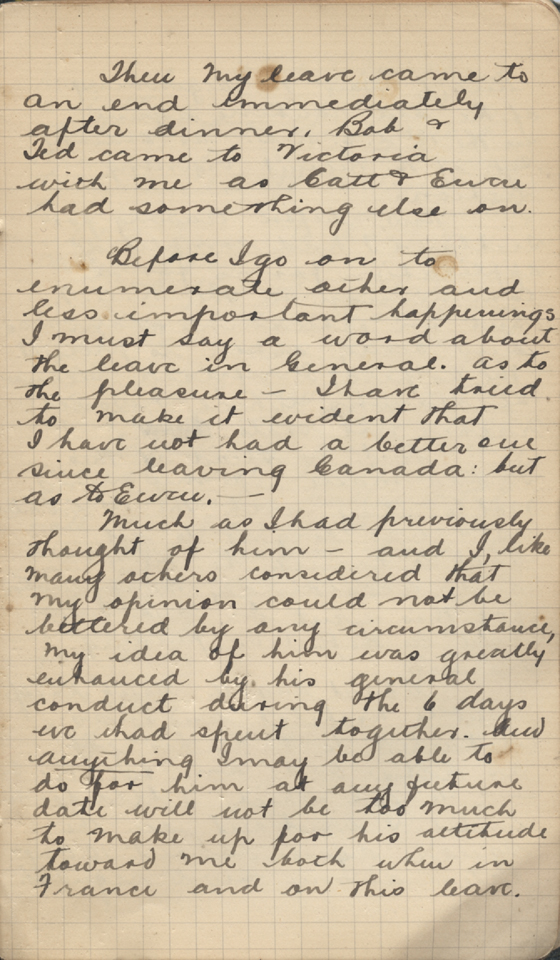 Then My leave came to
an end immediately
after dinner. Bob &
Ted came to Victoria
with me as Catt & Ewen
had something else on.
Before I go on to
enumerate other and
less important happenings
I must say a word about
the leave in General. As to
the pleasure - I have tried
to make it evident that
I have not had a better one
since leaving Canada: but
as to Ewen. —
Much as I had previously
thought of him - and I, like
many others considered that
my opinion could not be
bettered by any circumstance,
my idea of him was greatly
enhanced by his general
conduct during the 6 days
we had spent together. And
anything I may be able to
do for him at any future
date will not be too much
to make up for his attitude
toward me both when in
France and on this leave.